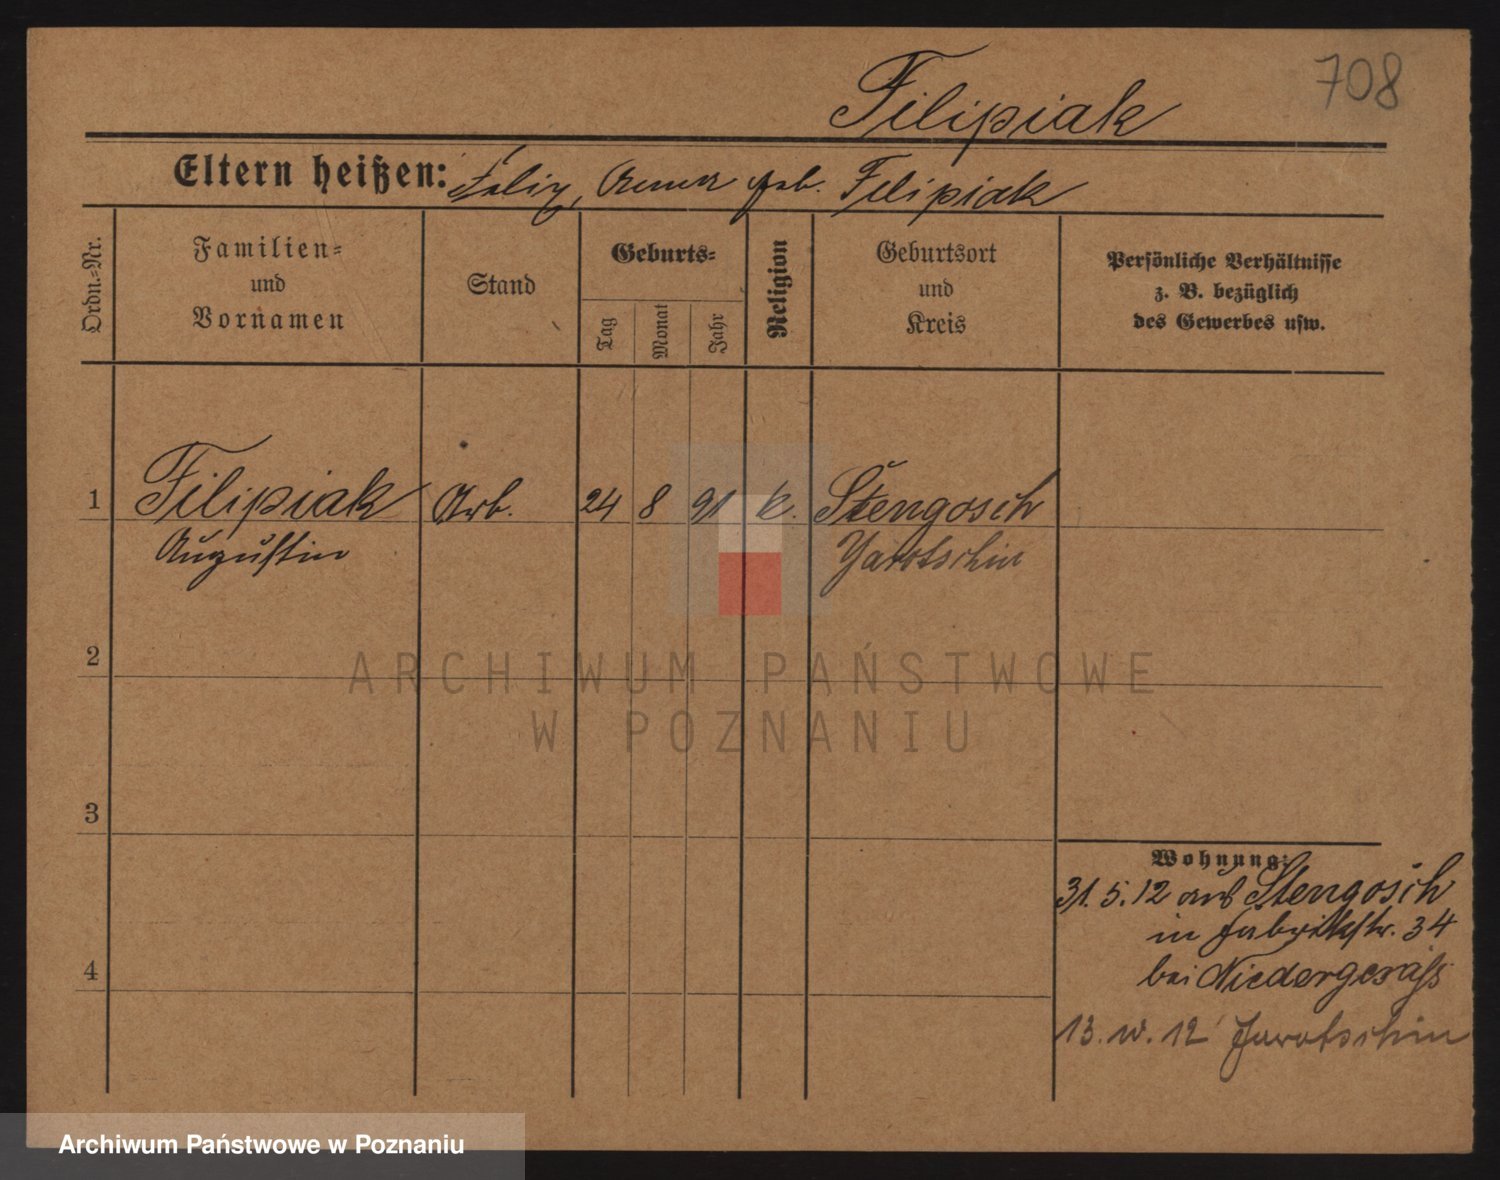 708
Filipiak
Eltern heißen: Felix, Anna geb. Filipiak
Ordn.-Nr.
Familien-
und
Vornamen
Stand
Geburts-
Tag
Monat
Jahr
Religion
Geburtsort
und
Kreis
Persönliche Verhältnisse
z. B. bezüglich
des Gewerbes usw.
1 Filipiak Arb. 24 8 91 k. Stengosch
Augustin Jarotschin
2
3
4
Wohnung:
31. 5. 12 aus Stengosch
in Fabrikstr. 34
bei Niedergesäß
13. 12 Jarotschin
ARCHIWUM PAŃSTWOWE
W POZNANIU
Archiwum Państwowe w Poznaniu